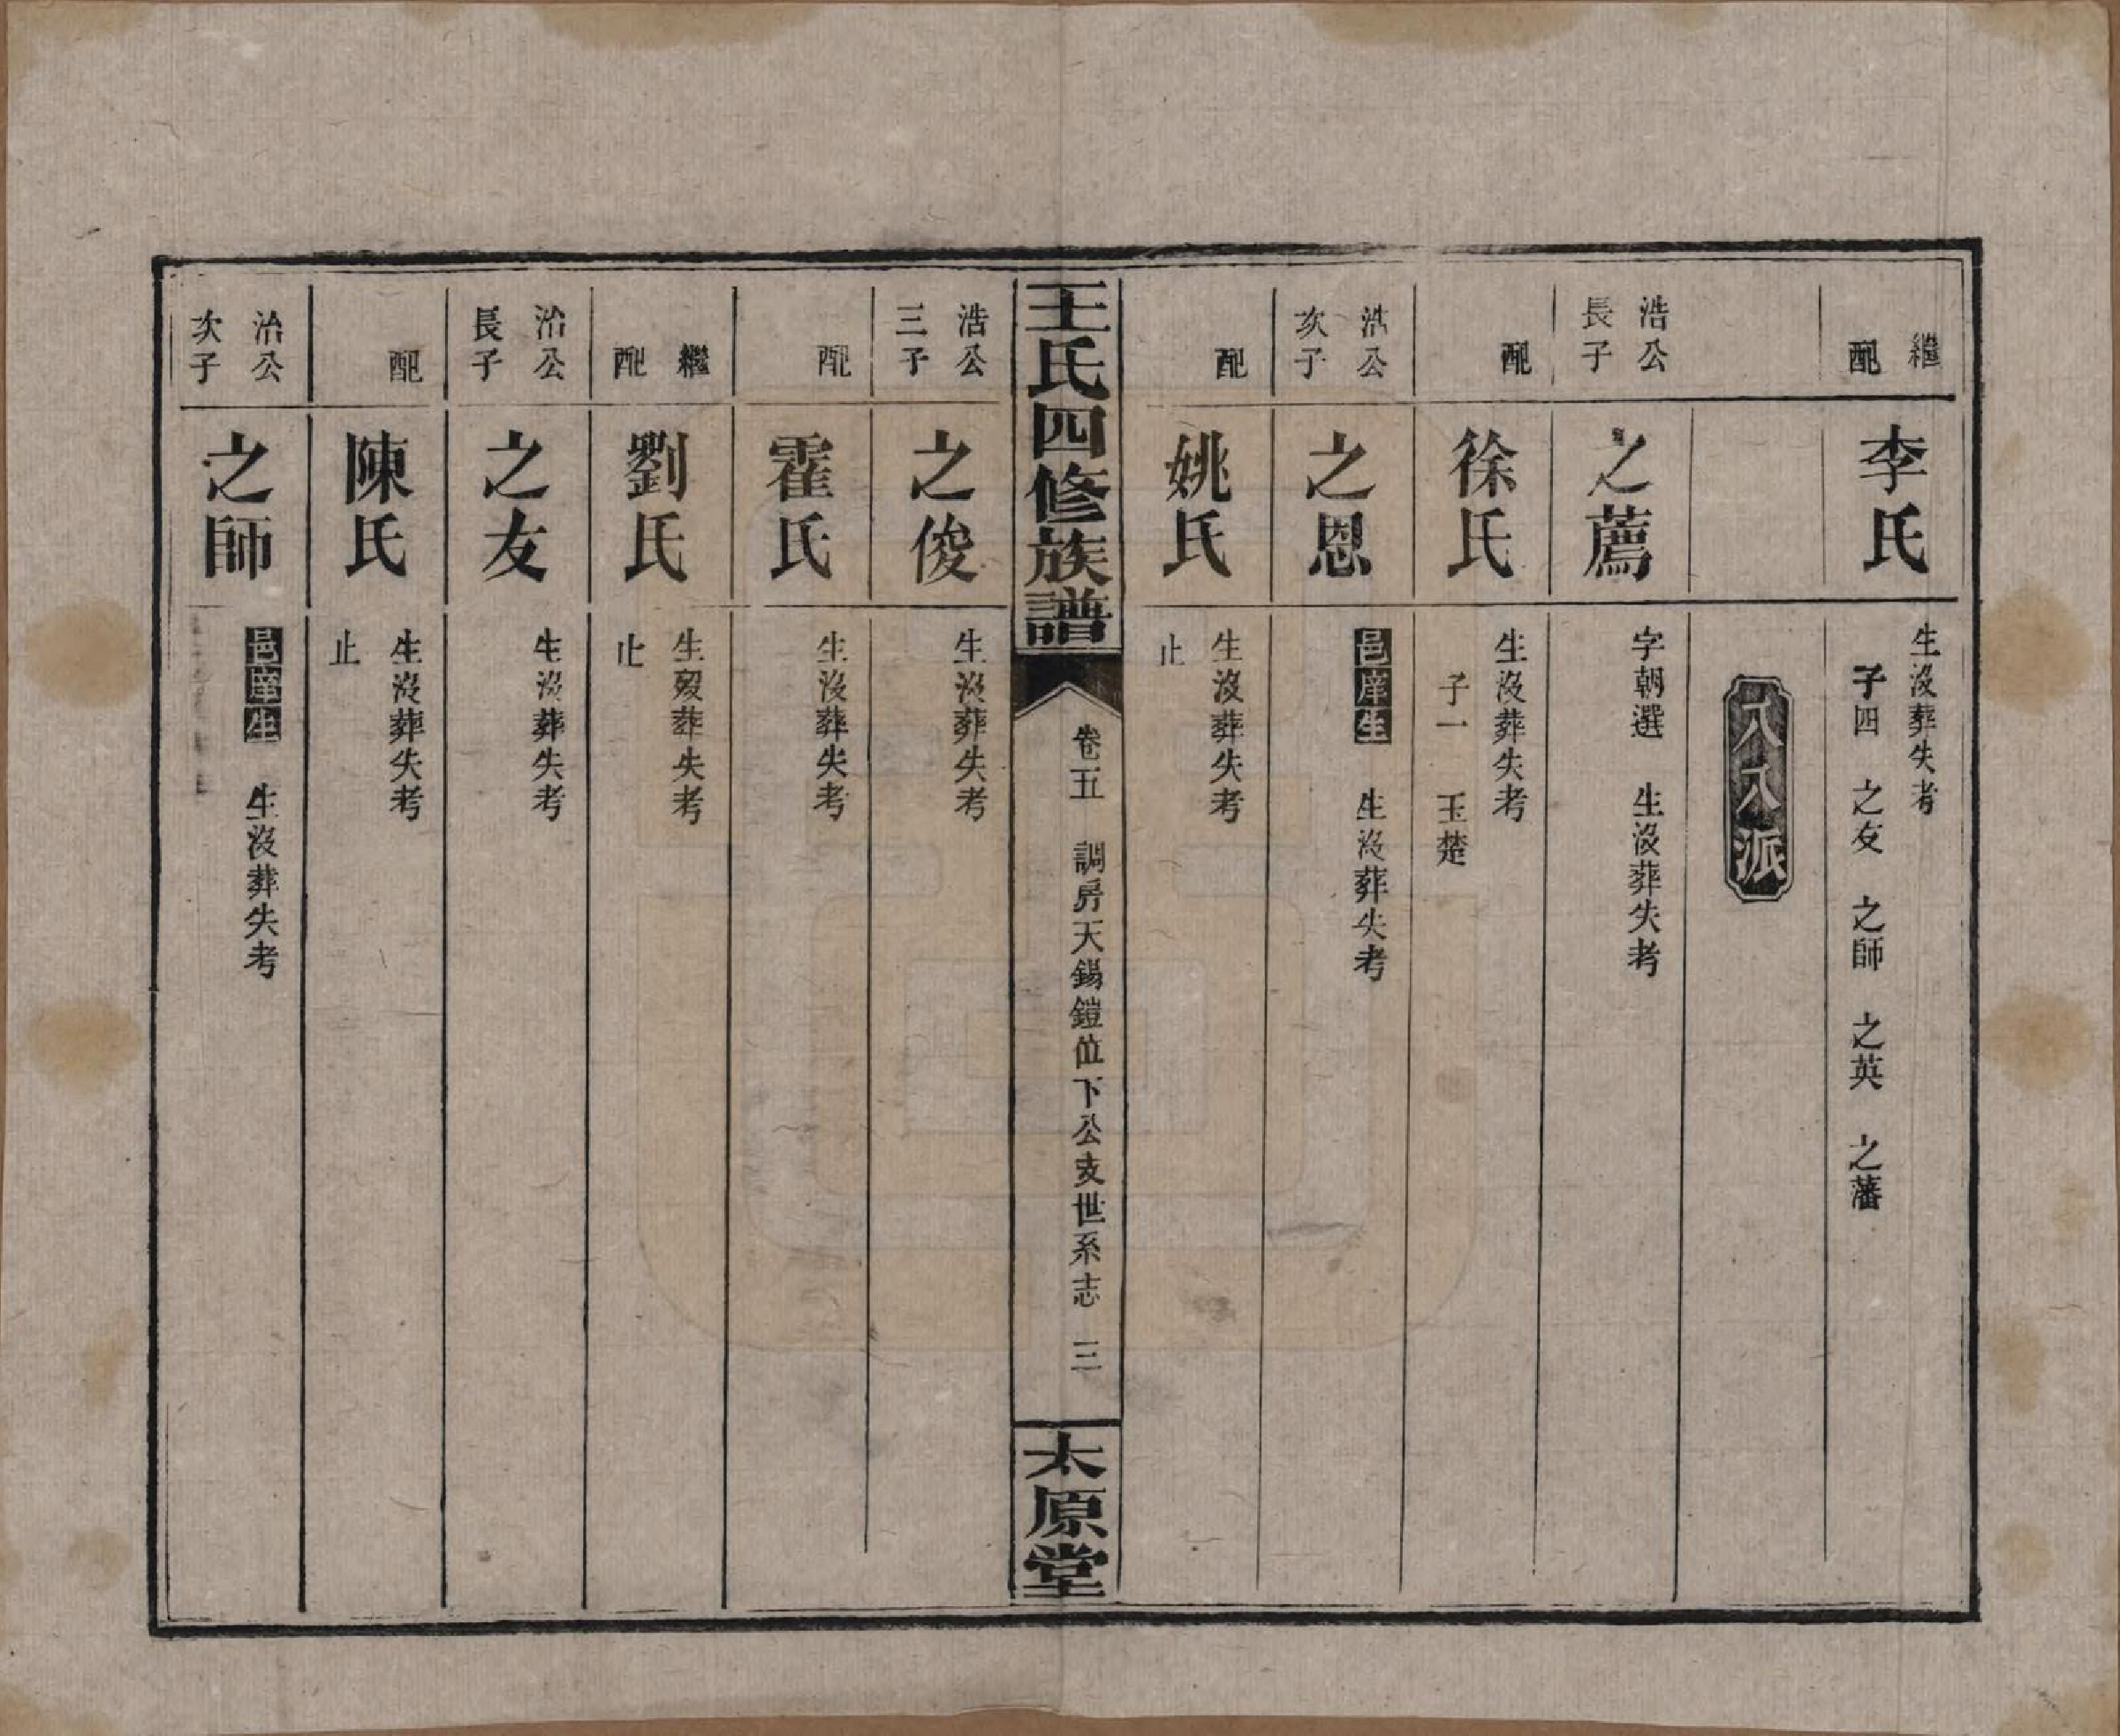 繼配
李氏
生沒葬失考
子四 之友 之師 之英 之藩
八八派
浩公長子
之薦
字朝選 生沒葬失考
配
徐氏
生沒葬失考
子一 玉楚
浩公次子
之恩
邑庠生 生沒葬失考
配
姚氏
生沒葬失考
止
王氏四修族譜
卷五 調房天錫鎧位下公支世系志 三
太原堂
浩公三子
之俊
生沒葬失考
配
霍氏
生沒葬失考
繼配
劉氏
生歿葬失考
止
治公長子
之友
生沒葬失考
配
陳氏
生沒葬失考
止
治公次子
之師
邑庠生 生沒葬失考